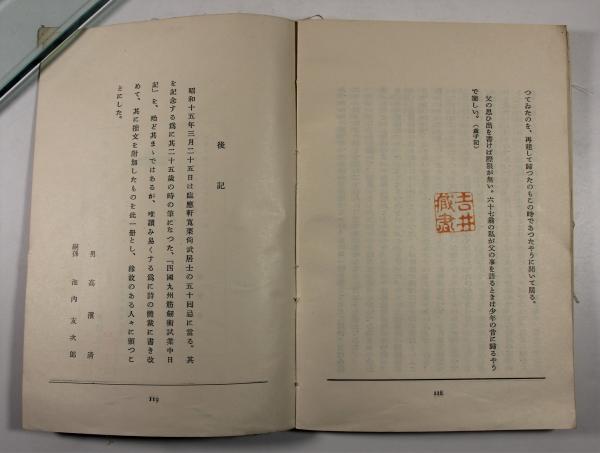 つてゐたのを、再建して歸つたのもこの時であつたやうに聞いて居る。
父の思ひ出を書けば際限が無い。六十七翁の私が父の事を語るときは少年の昔に歸るやう
で樂しい。
吉井
藏書
118
後記
昭和十五年三月二十五日は臨應軒寬栗尙武居士の五十囘忌に當る。其
を記念する爲に其二十五歲の時の筆になつた、「四國九州筋劍術試業中日
記」を、殆ど其まゝではあるが、唯讀み易くする爲に詩の體裁に書き改
めて、其に拙文を附加したものを此一册とし、緣故のある人々に頒つこ
とにした。
男 高濱淸
嗣孫 池內友次郎
119